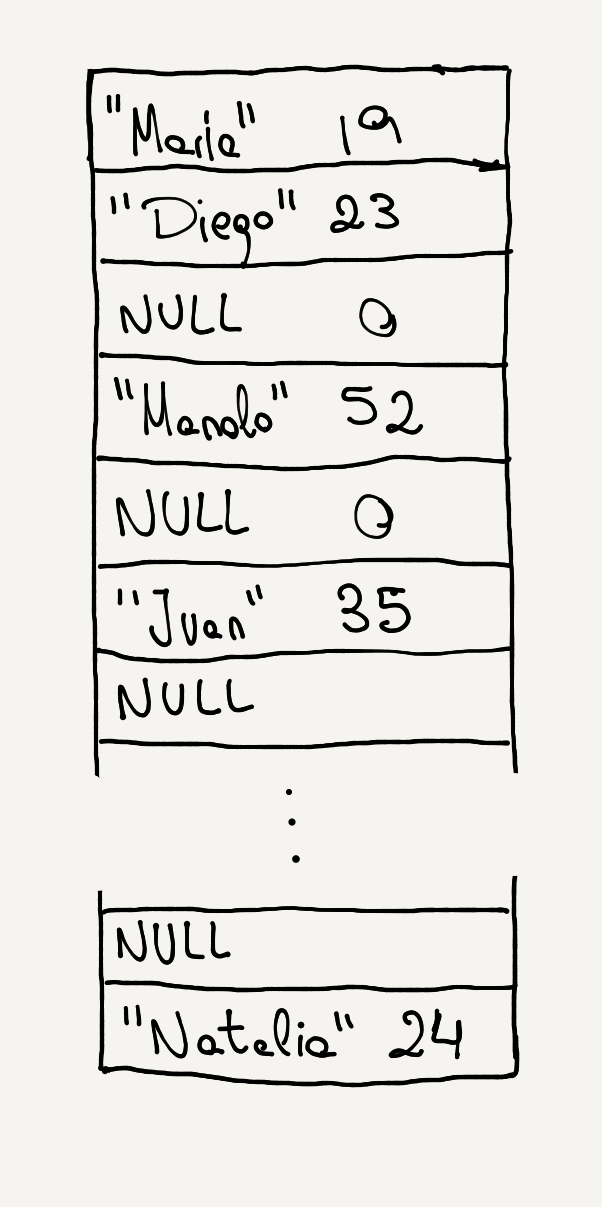 "Maria" 19
"Diego" 23
NULL 0
"Manolo" 52
NULL 0
"Juan" 35
NULL
NULL
"Natalia" 24